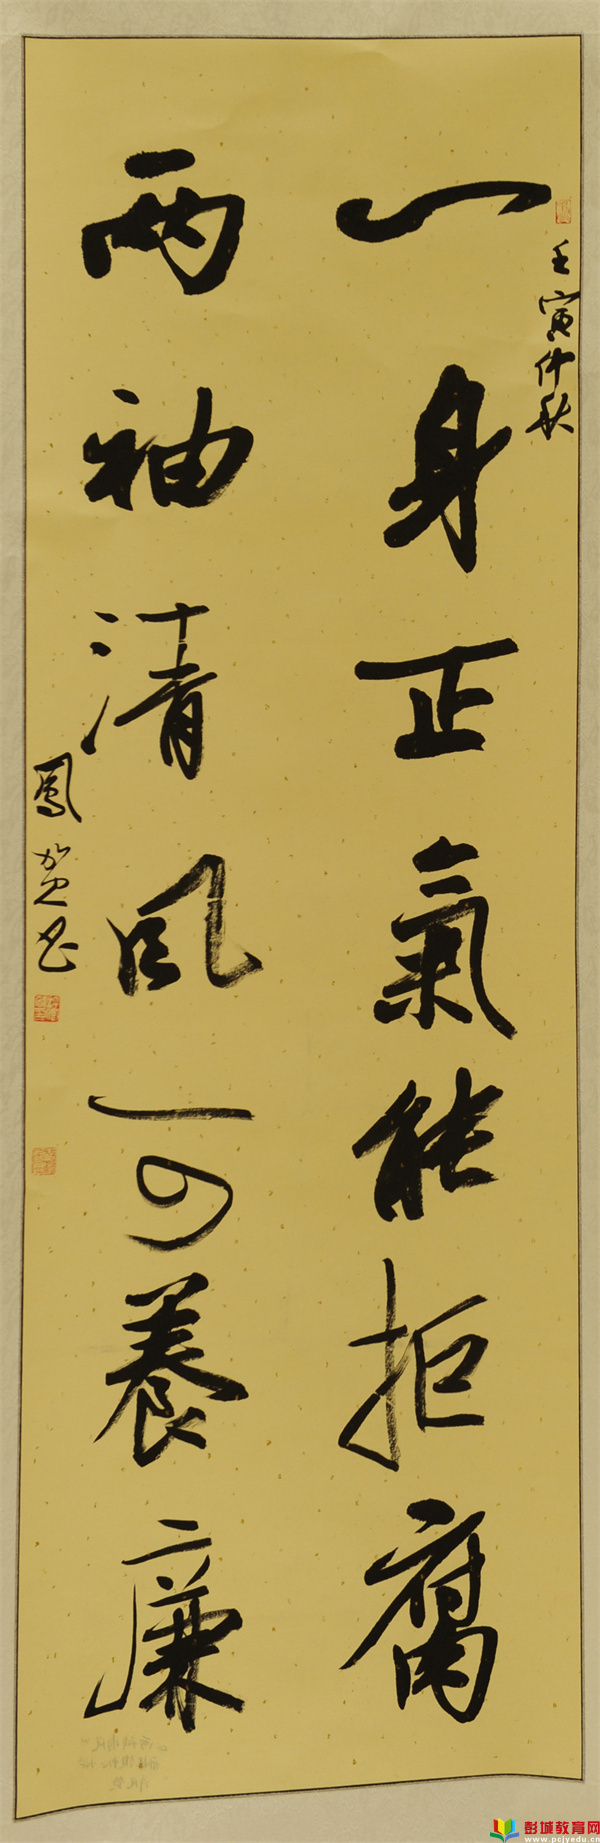 壬寅仲秋
一身正氣能拒腐
兩袖清風可養廉
鳳
彭城教育网
www.pcjyedu.cn